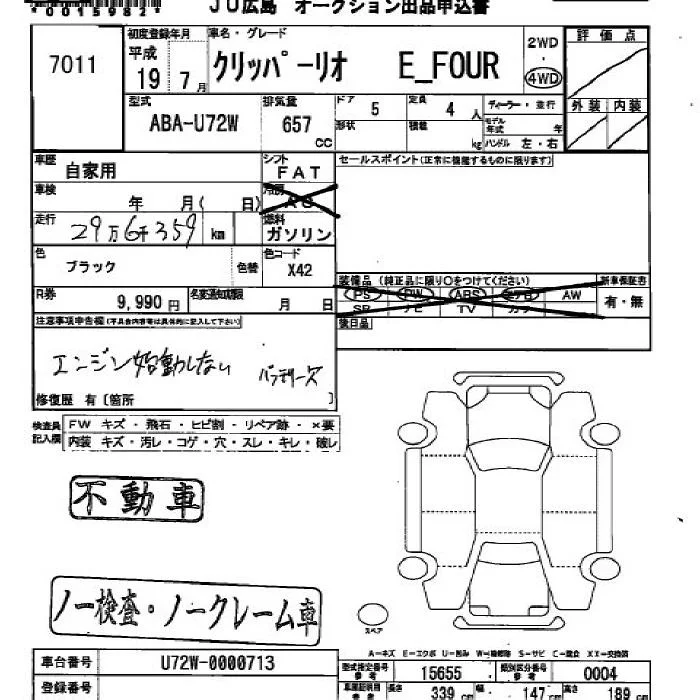 *0015982*
JU広島 オークション出品申込書
7011
初度登録年月
平成
19 7月
車名・グレード
クリッパーリオ E_FOUR
2WD
・
4WD
評価点
外装 内装
型式
ABA-U72W
排気量
657
CC
ドア 5
定員 4 人
形状
積載 kg
ディーラー・並行
モデル年式 年
ハンドル 左・右
車歴 自家用
シフト
FAT
セールスポイント(正常に機能するものに限ります)
車検 年 月( 日)
冷房
AC
走行 29万6千359 km
燃料
ガソリン
色 ブラック 色替
色コード
X42
装備品 (純正品に限り○をつけてください)
新車保証書
PS PW ABS エアB AW
有・無
SR ナビ TV カワ
R券 9,990円
名変通知期限 月 日
後日品
注意事項申告欄(不具合内容等は具体的に記入して下さい)
エンジン始動しない バッテリー欠
修復歴 有〔箇所 〕
検査員記入欄
FW キズ・飛石・ヒビ割・リペア跡・×要
内装 キズ・汚レ・コゲ・穴・スレ・キレ・破レ
不動車
ノー検査・ノークレーム車
スペア
A-キズ E-エクボ U-凹み W-補修跡 S-サビ C-腐食 XX-交換済
車台番号 U72W-0000713
型式指定番号
参考
15655
類別区分番号
参考
0004
登録番号
車庫証明用
参考
長さ 339 cm
幅 147 cm
高さ 189 cm